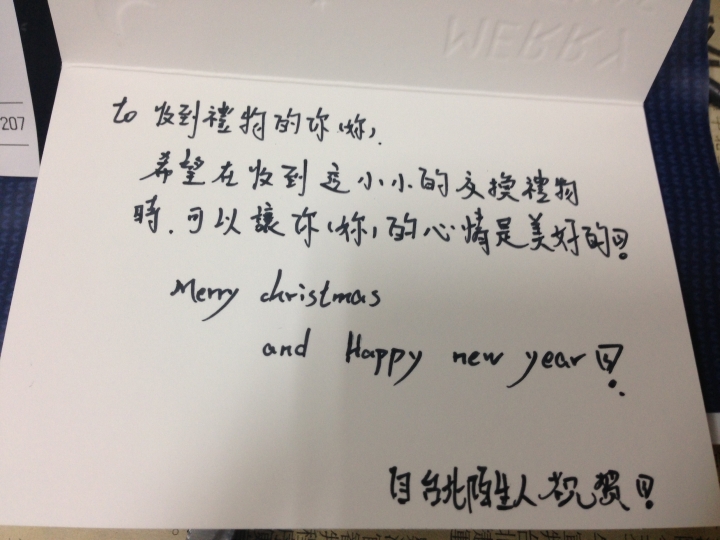 MERRY
207
to 收到禮物的你(妳),
希望在收到這小小的交換禮物
時,可以讓你(妳)的心情是美好的!
Merry christmas
and Happy new year!
自台北陌生人祝賀!